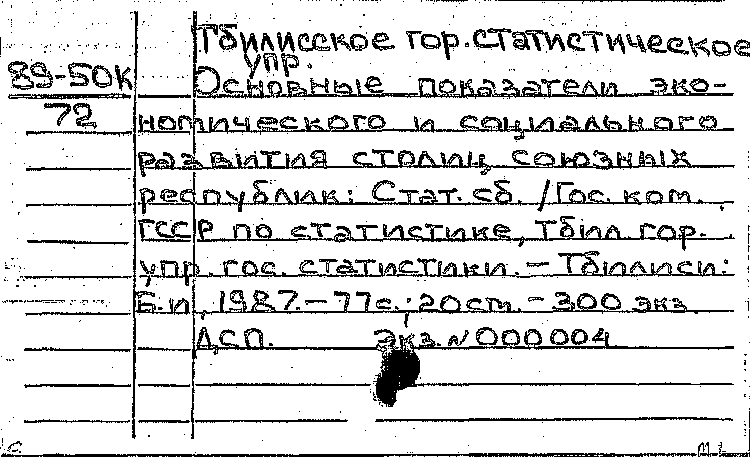 Тбилисское гор. статистическое
упр.
89-50К Основные показатели эко-
72 номического и социального
развития столиц союзных
республик: Стат. сб. / Гос. ком.
ГССР по статистике, Тбил. гор.
упр. гос. статистики. — Тбилиси:
Б.и., 1987. — 77с.; 20 ст. — 300 экз.
ДСП. Экз. № 000004